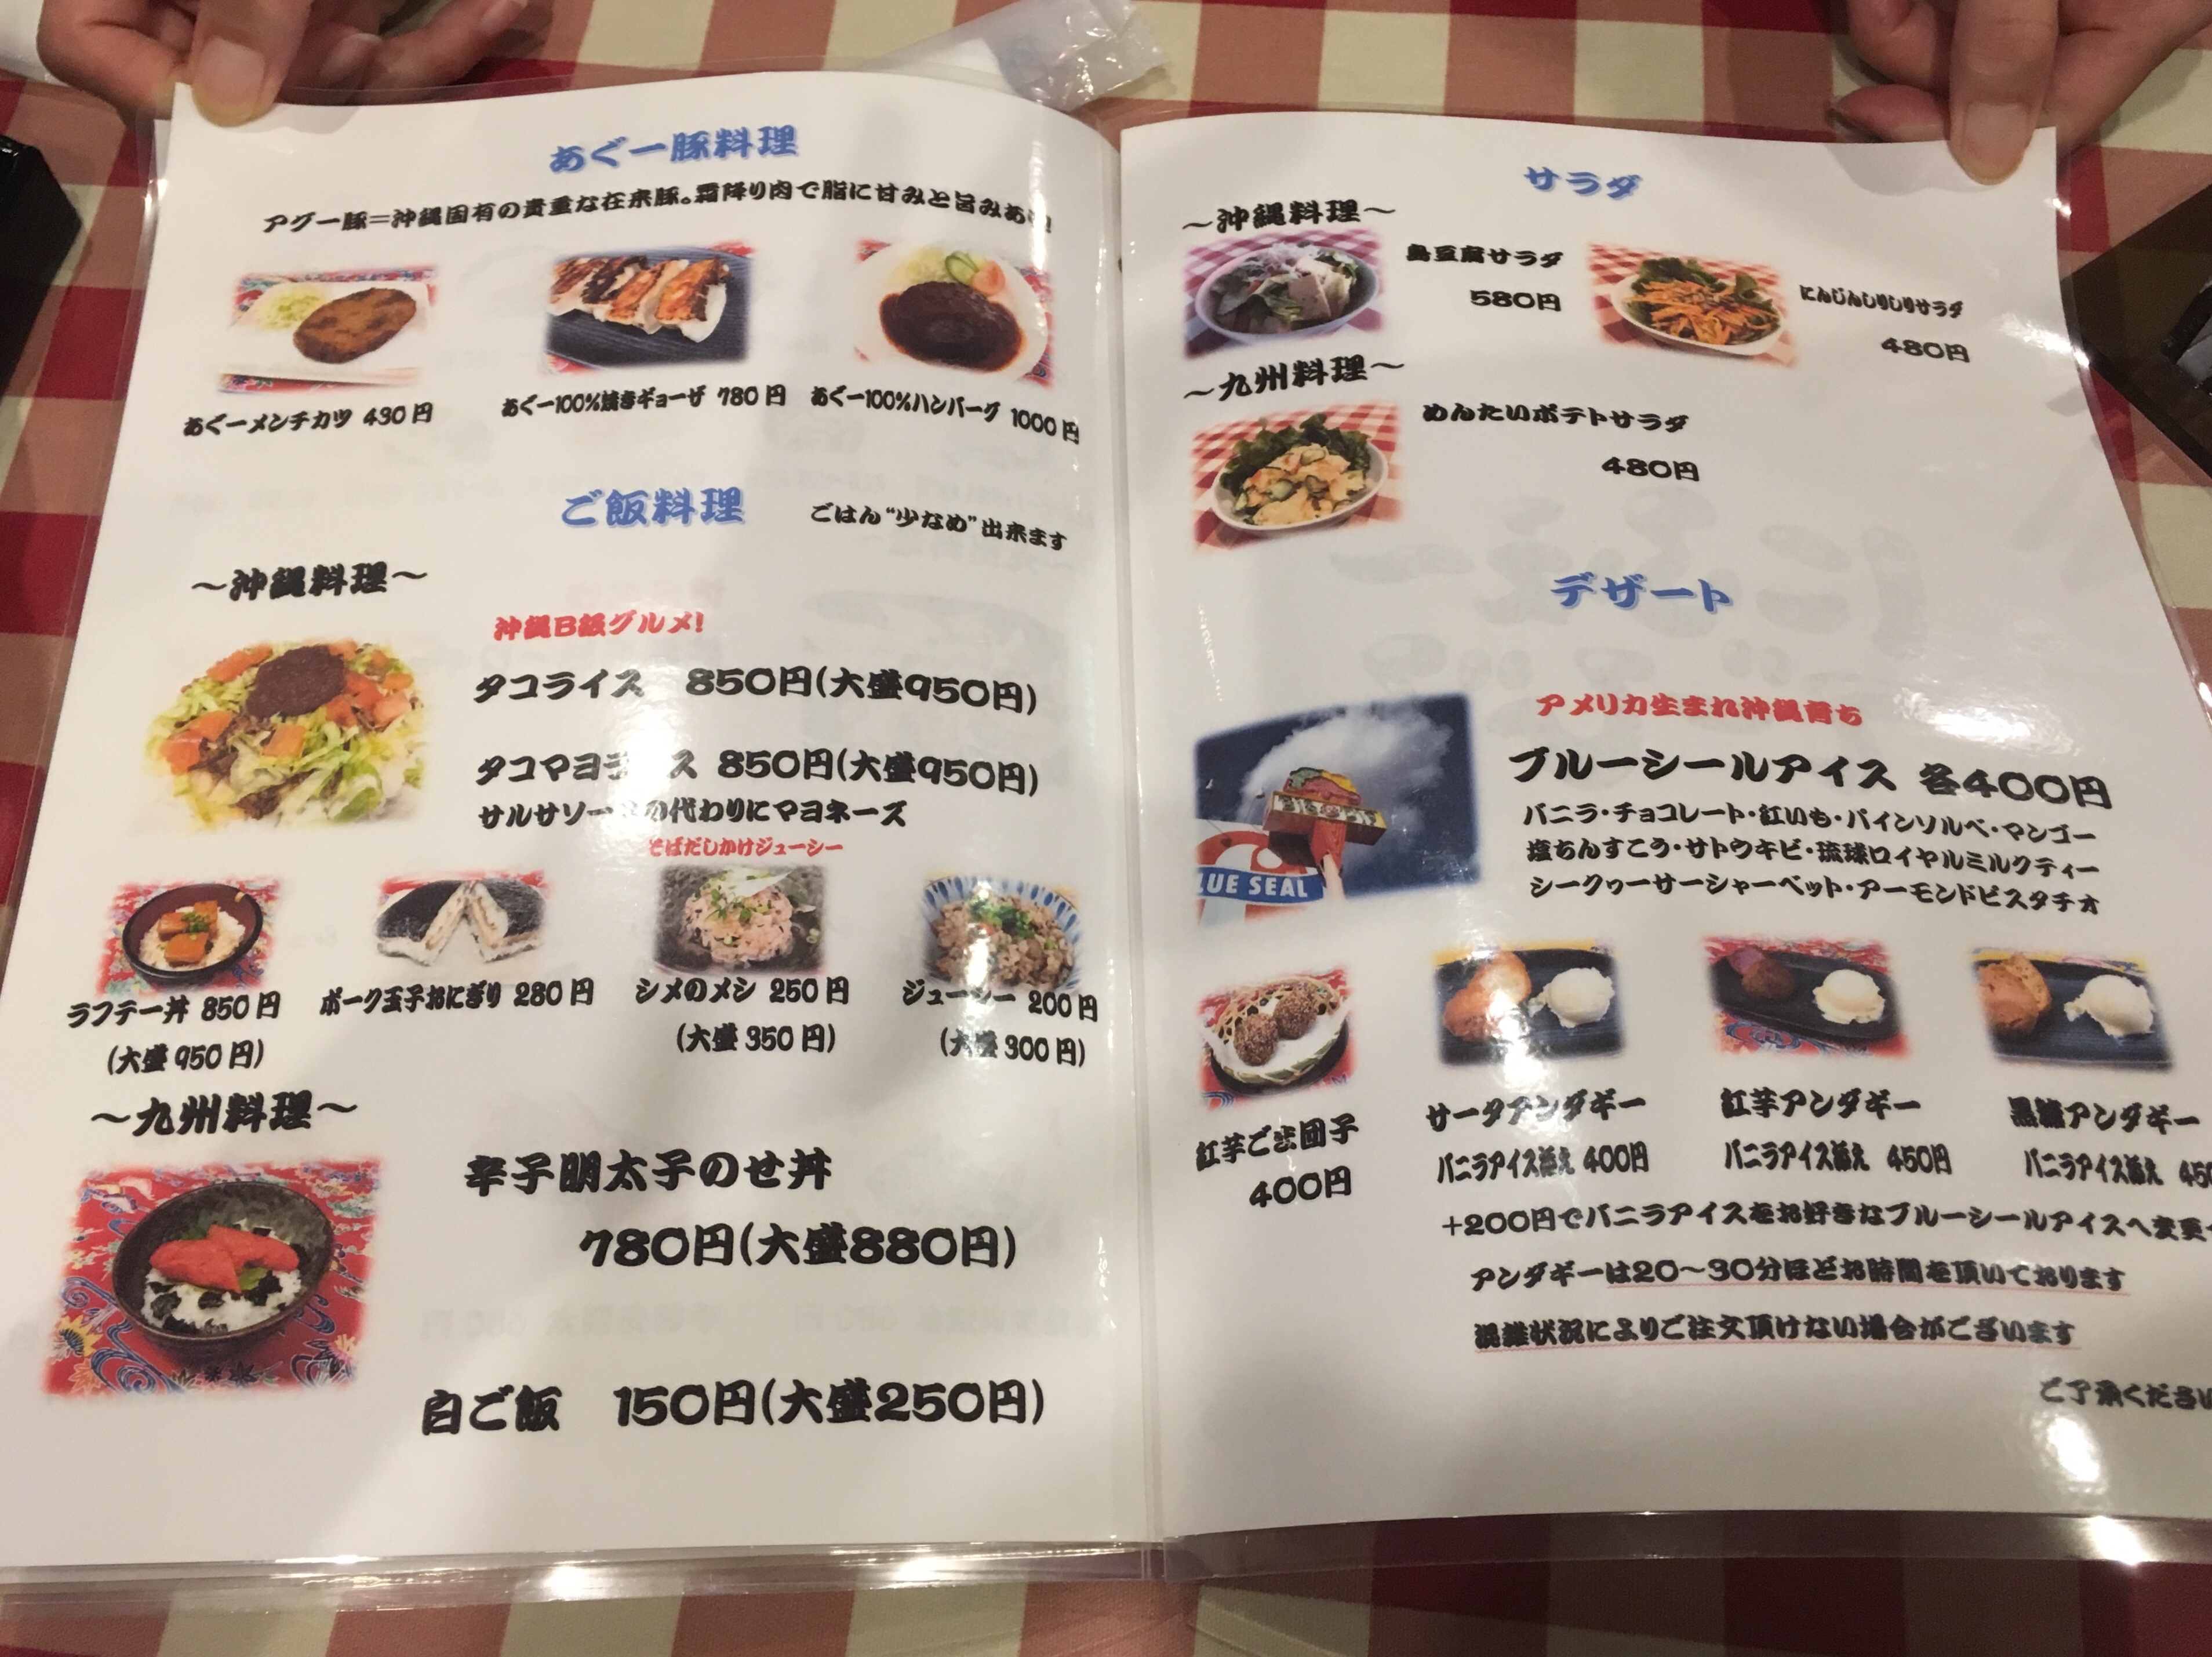 あぐー豚料理
アグー豚＝沖縄固有の貴重な在来豚。霜降り肉で脂に甘みと旨みあり!
あぐーメンチカツ 430円
あぐー100%焼きギョーザ 780円
あぐー100%ハンバーグ 1000円
ご飯料理
ごはん“少なめ”出来ます
～沖縄料理～
沖縄B級グルメ!
タコライス 850円(大盛950円)
タコマヨライス 850円(大盛950円)
サルサソースの代わりにマヨネーズ
そばだしかけジューシー
ラフテー丼 850円
(大盛950円)
ポーク玉子おにぎり 280円
シメのメシ 250円
(大盛350円)
ジューシー 200円
(大盛300円)
～九州料理～
辛子明太子のせ丼
780円(大盛880円)
白ご飯 150円(大盛250円)
サラダ
～沖縄料理～
島豆腐サラダ
580円
にんじんしりしりサラダ
480円
～九州料理～
めんたいポテトサラダ
480円
デザート
アメリカ生まれ沖縄育ち
ブルーシールアイス 各400円
バニラ・チョコレート・紅いも・パインソルベ・マンゴー
塩ちんすこう・サトウキビ・琉球ロイヤルミルクティー
シークヮーサーシャーベット・アーモンドピスタチオ
BIG DIP
LUE SEAL
紅芋ごま団子
400円
サータアンダギー
バニラアイス添え 400円
紅芋アンダギー
バニラアイス添え 450円
黒糖アンダギー
バニラアイス添え 450
+200円でバニラアイスをお好きなブルーシールアイスへ変更
アンダギーは20～30分ほどお時間を頂いております
混雑状況によりご注文頂けない場合がございます
ご了承ください